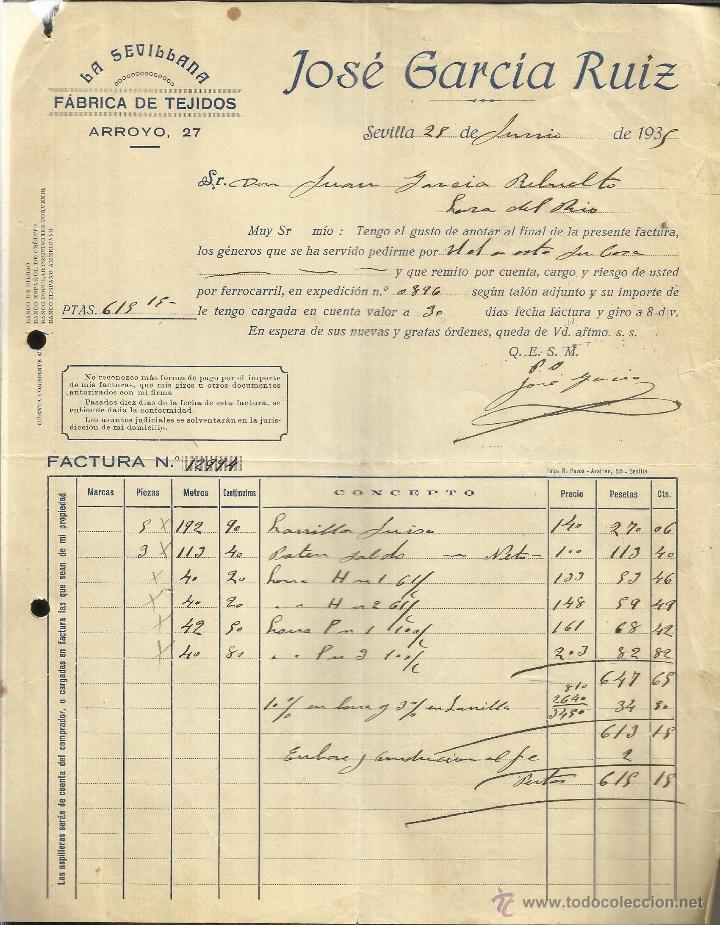 LA SEVILLANA
FÁBRICA DE TEJIDOS
ARROYO, 27
José García Ruiz
Sevilla 28 de Junio de 1935
Sr. Don Juan Garcia Rebuelto
Lora del Rio
Muy Sr mío: Tengo el gusto de anotar al final de la presente factura,
los géneros que se ha servido pedirme por
y que remito por cuenta, cargo, y riesgo de usted
por ferrocarril, en expedición n.º 0896 según talón adjunto y su importe de
PTAS. 615 15 le tengo cargada en cuenta valor a 30 días fecha fáctura y giro a 8 d v.
En espera de sus nuevas y gratas órdenes, queda de Vd. aftmo. s. s.
Q. E. S. M.
P.O
José Garcia
BANCO DE BILBAO
BANCO ESPAÑOL DE CRÉDITO
BANCO HISPANO AMERICANO
CUENTA CORRIENTE
No reconozco más forma de pago por el importe
de mis facturas, que mis giros u otros documentos
autorizados con mi firma
Pasados diez días de la fecha de esta factura, se
entiende dada la conformidad.
Los asuntos judiciales se solventarán en la juris-
dicción de mi domicilio.
FACTURA N.º 12994
Imp. R. Pavia - Arafran, 55 - Sevilla
Marcas Piezas Metros Centímetros CONCEPTO Precio Pesetas Cts.
5 X 192 90 Lanilla 140 270 06
3 X 113 40 Paten saldo - Neto - 100 113 40
X 40 20 Lona H nº 1 61/c 133 53 46
X 40 20 " " H nº 2 61/c 148 59 49
X 42 50 Lona P nº 1 100/c 161 68 42
X 40 80 " " P nº 3 100/c 203 82 82
647 65
810
2640
3450
10% en lona y 3% en Lanilla 34 50
613 15
y conduccion al f c 2
Pesetas 615 15
Las aspilleras serán de cuenta del comprador, o cargadas en factura las que sean de mi propiedad
© todocoleccion
www.todocoleccion.net